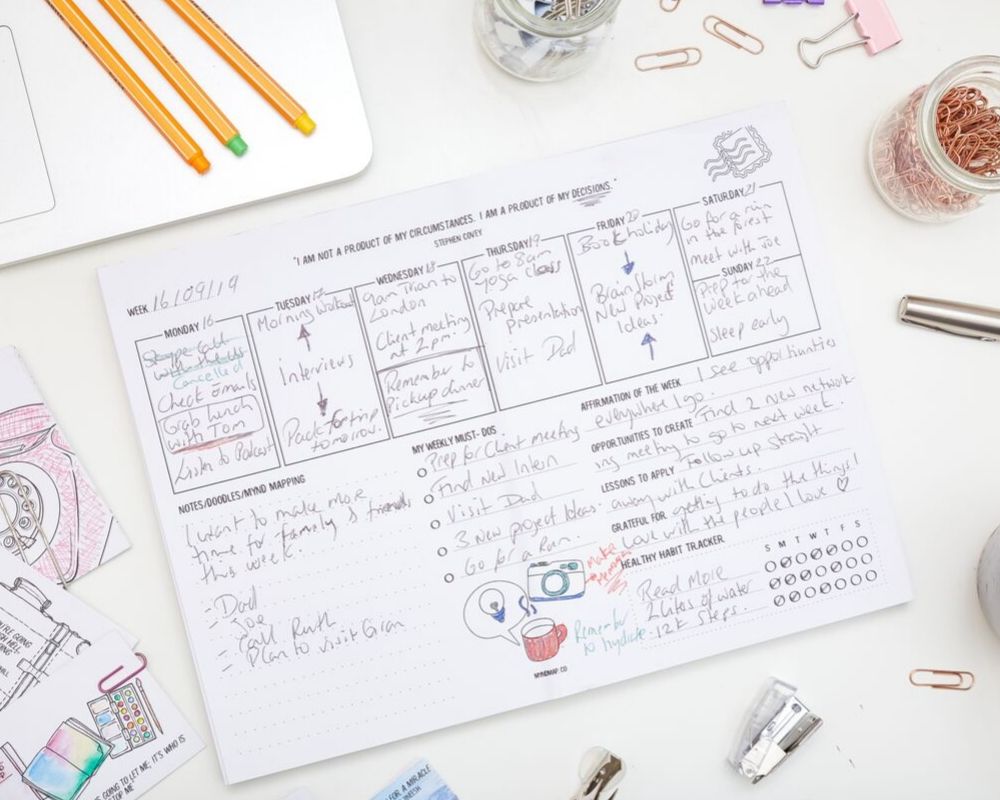 "I AM NOT A PRODUCT OF MY CIRCUMSTANCES. I AM A PRODUCT OF MY DECISIONS."
STEPHEN COVEY
WEEK 16/09/19
MONDAY 16
Cancelled
Check Emails
Grab lunch
with Tom
Listen to Podcast
TUESDAY 17
Morning workout
Interviews
Pack for trip
tomorrow.
WEDNESDAY 18
9am Train to
London
Client meeting
at 2pm.
Remember to
pickup dinner
THURSDAY 19
Go to 8am
yoga class
Prepare
presentation
Visit Dad
FRIDAY 20
Book holiday
Brainstorm
New Project
Ideas.
SATURDAY 21
Go for a run
in the forest
meet with Joe
SUNDAY 22
Prep for the
week ahead
Sleep early
NOTES/DOODLES/MYND MAPPING
I want to make more
time for family & friends
this week.
- Dad
- Joe
- Call Ruth
- Plan to visit Gran
MY WEEKLY MUST-DOS
Prep for Client meeting
Find New Intern
Visit Dad
3 New project Ideas.
Go for a Run.
AFFIRMATION OF THE WEEK I see opportunities
everywhere I go.
OPPORTUNITIES TO CREATE Find 2 new network
ing meeting to go to next week.
LESSONS TO APPLY Follow up straight
away with Clients.
GRATEFUL FOR getting to do the things I
love with the people I love
HEALTHY HABIT TRACKER
S M T W T F S
Read More
2 Litres of water
12k Steps.
Make
Remember
to hydrate
MYNDMAP.CO
GOING TO LET ME, IT'S WHO IS
STOP ME
FOR A MIRACLE